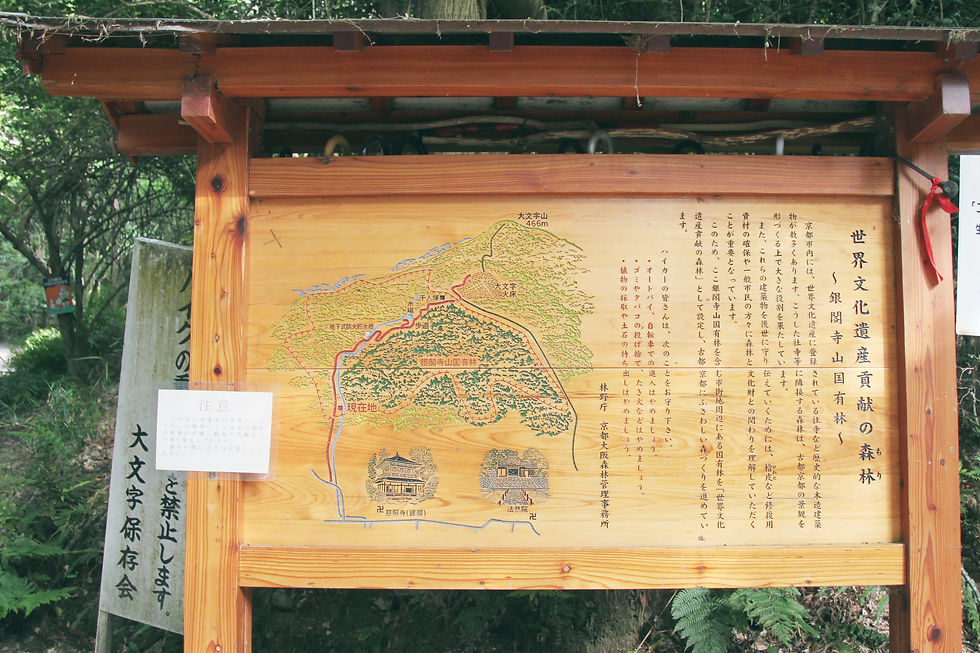 世界文化遺産貢献の森林
もり
～銀閣寺山国有林～
京都市内には、世界文化遺産に登録されている社寺など歴史的な木造建築
物が数多くあります。こうした社寺等に隣接する森林は、古都京都の景観を
形づくる上で大きな役割を果たしています。
また、これらの建築物を後世に守り伝えていくためには、檜皮など修復用
資材の確保や一般市民の方々に森林と文化財との関わりを理解していただく
ことが重要となっています。
このため、ここ銀閣寺山国有林を含む市街地周辺にある国有林を「世界文化
遺産貢献の森林」として設定し、古都京都にふさわしい森づくりを進めてい
ます。
ハイカーの皆さんは、次のことをお守り下さい。
・オートバイ、自転車での進入はやめましょう。
・ゴミやタバコの投げ捨て、たき火などはやめましょう。
・植物の採取や土石の持ち出しはやめましょう。
林野庁 京都大阪森林管理事務所
大文字山
466m
大文字
火床
千人塚
水場
地下式防火貯水槽
歩道
銀閣寺山国有林
現在地
卍 慈照寺(銀閣)
法然院 卍
注意
バイクの
を禁止します。
大文字保存会